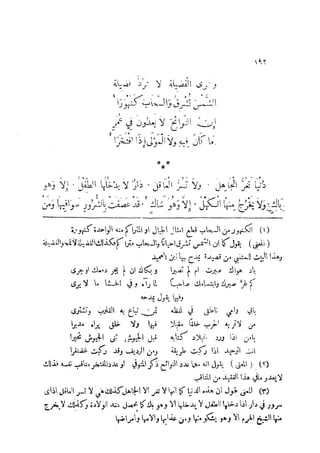 ١٩٢
وترى الفضيلة لا ترد فضيلة
الشمس تشرق والسحاب كنهورا ١
إن النوائح لا يعدون في عمر
ما كان فيه ولا المولى إذا افتخرا ٢
***
دنيا تغر الجاهل . ولا تسر العاقل . دار لا يدخلها الطفل . إلا وهو
باك . ولا يخرج منها الكهل . إلا وهو شاك ٣ . قد عصفت بالشرور سوافيها ومن
(١) الكنهور من السحاب قطع امثال الجبال او المتراكم منه الواحدة كنهورة
(المعنى) يقول كما ان الشمس تشرق احيانا والسحاب متراكم فكذلك الفضيلة لا تحجب الفضيلة
وهذا البيت للمتنبي من قصيدة يمدح بها ابن العميد
باد هواك صبرت ام لم تصبرا وبكاك ان لم يجر دمعك او جرى
كم غر صبرك وابتسامك صاحبا لما رآه وفي الحشا ما لا يرى
وفيها يقول يمدحه
بأبي وأمي ناطق في لفظه ثمن تباع به القلوب وتشترى
من لا تريه الحرب خلقا مقبلا فيها ولا خلق يراه مدبرا
يامن اذا ورد البلاد كتابه قبل الجيوش ثنى الجيوش تحيرا
انت الوحيد اذا ركبت طريقة ومن الرديف وقد ركبت غضنفرا
(٢) (المعنى) يقول انه مهما عدد النوائح ذكر المتوفي او عدد المفتخر مناقب نفسه فذلك
لا يعدو ما في هذا الفقيد من المناقب
(٣) المعنى يقول ان هذه الدنيا كما انها لا تغر الا الجاهل كذلك هي لا تسر العاقل اذ اي
سرور في دار اذا دخلها الطفل لا يدخلها الا وهو باك كما يحصل عند الولادة وكذلك لا يخرج
منها الشيخ الهرم الا وهو يشكو منها ومن عذابها وآلامها وأمراضها